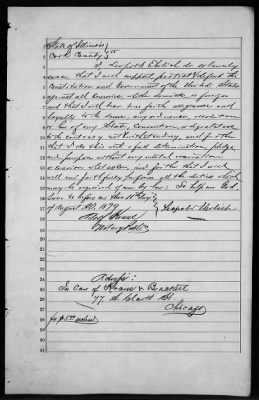 State of Illinois
Cook County ss
I Leopold Ehrlich do solemnly
swear, that I will support, protect & defend the
Constitution and Government of the United States
against all enemies, whether domestic or foreign
and that I will bear true faith allegiance and
loyalty to the same, any ordinance, resolution
or law of any State, Convention or Legislature
to the contrary notwithstanding, and further
that I do this with a full determination, pledge
and purpose without any mental reservation
or evasion whatsoever, and further that I will
well and faithfully perform all the duties which
may be required of me by law. So help me God
Sworn to before me this 18 day
of August AD. 1879 Leopold Ehrlich
Adolf Kraus
Notary Public
Address:
In Care of Kraus & Brackett
77 S. Clark St.
Chicago